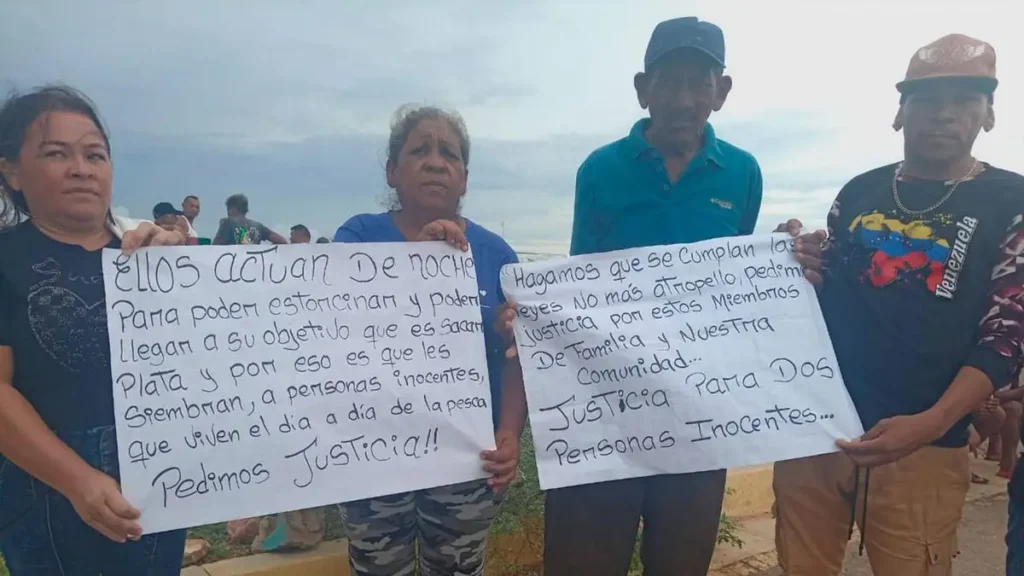 Ellos actúan de noche
Para poder estorcinar y poder
llegar a su objetivo que es sacar
Plata y por eso es que les
siembran, a personas inocentes,
que viven el día a día de la pesca
Pedimos Justicia!!
Hagamos que se cumplan las
leyes No más atropello, pedimos
Justicia por estos Miembros
De Familia y Nuestra
Comunidad...
Justicia Para Dos
Personas Inocentes...
Venezuela